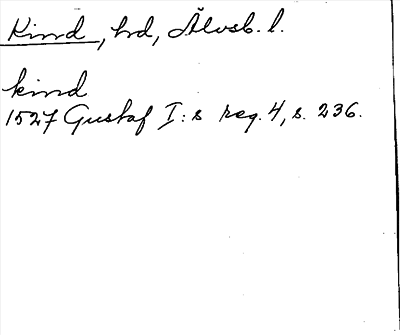 Kind, hd, Älvsb. l.
kind
1527 Gustaf I:s reg. 4, s. 236.